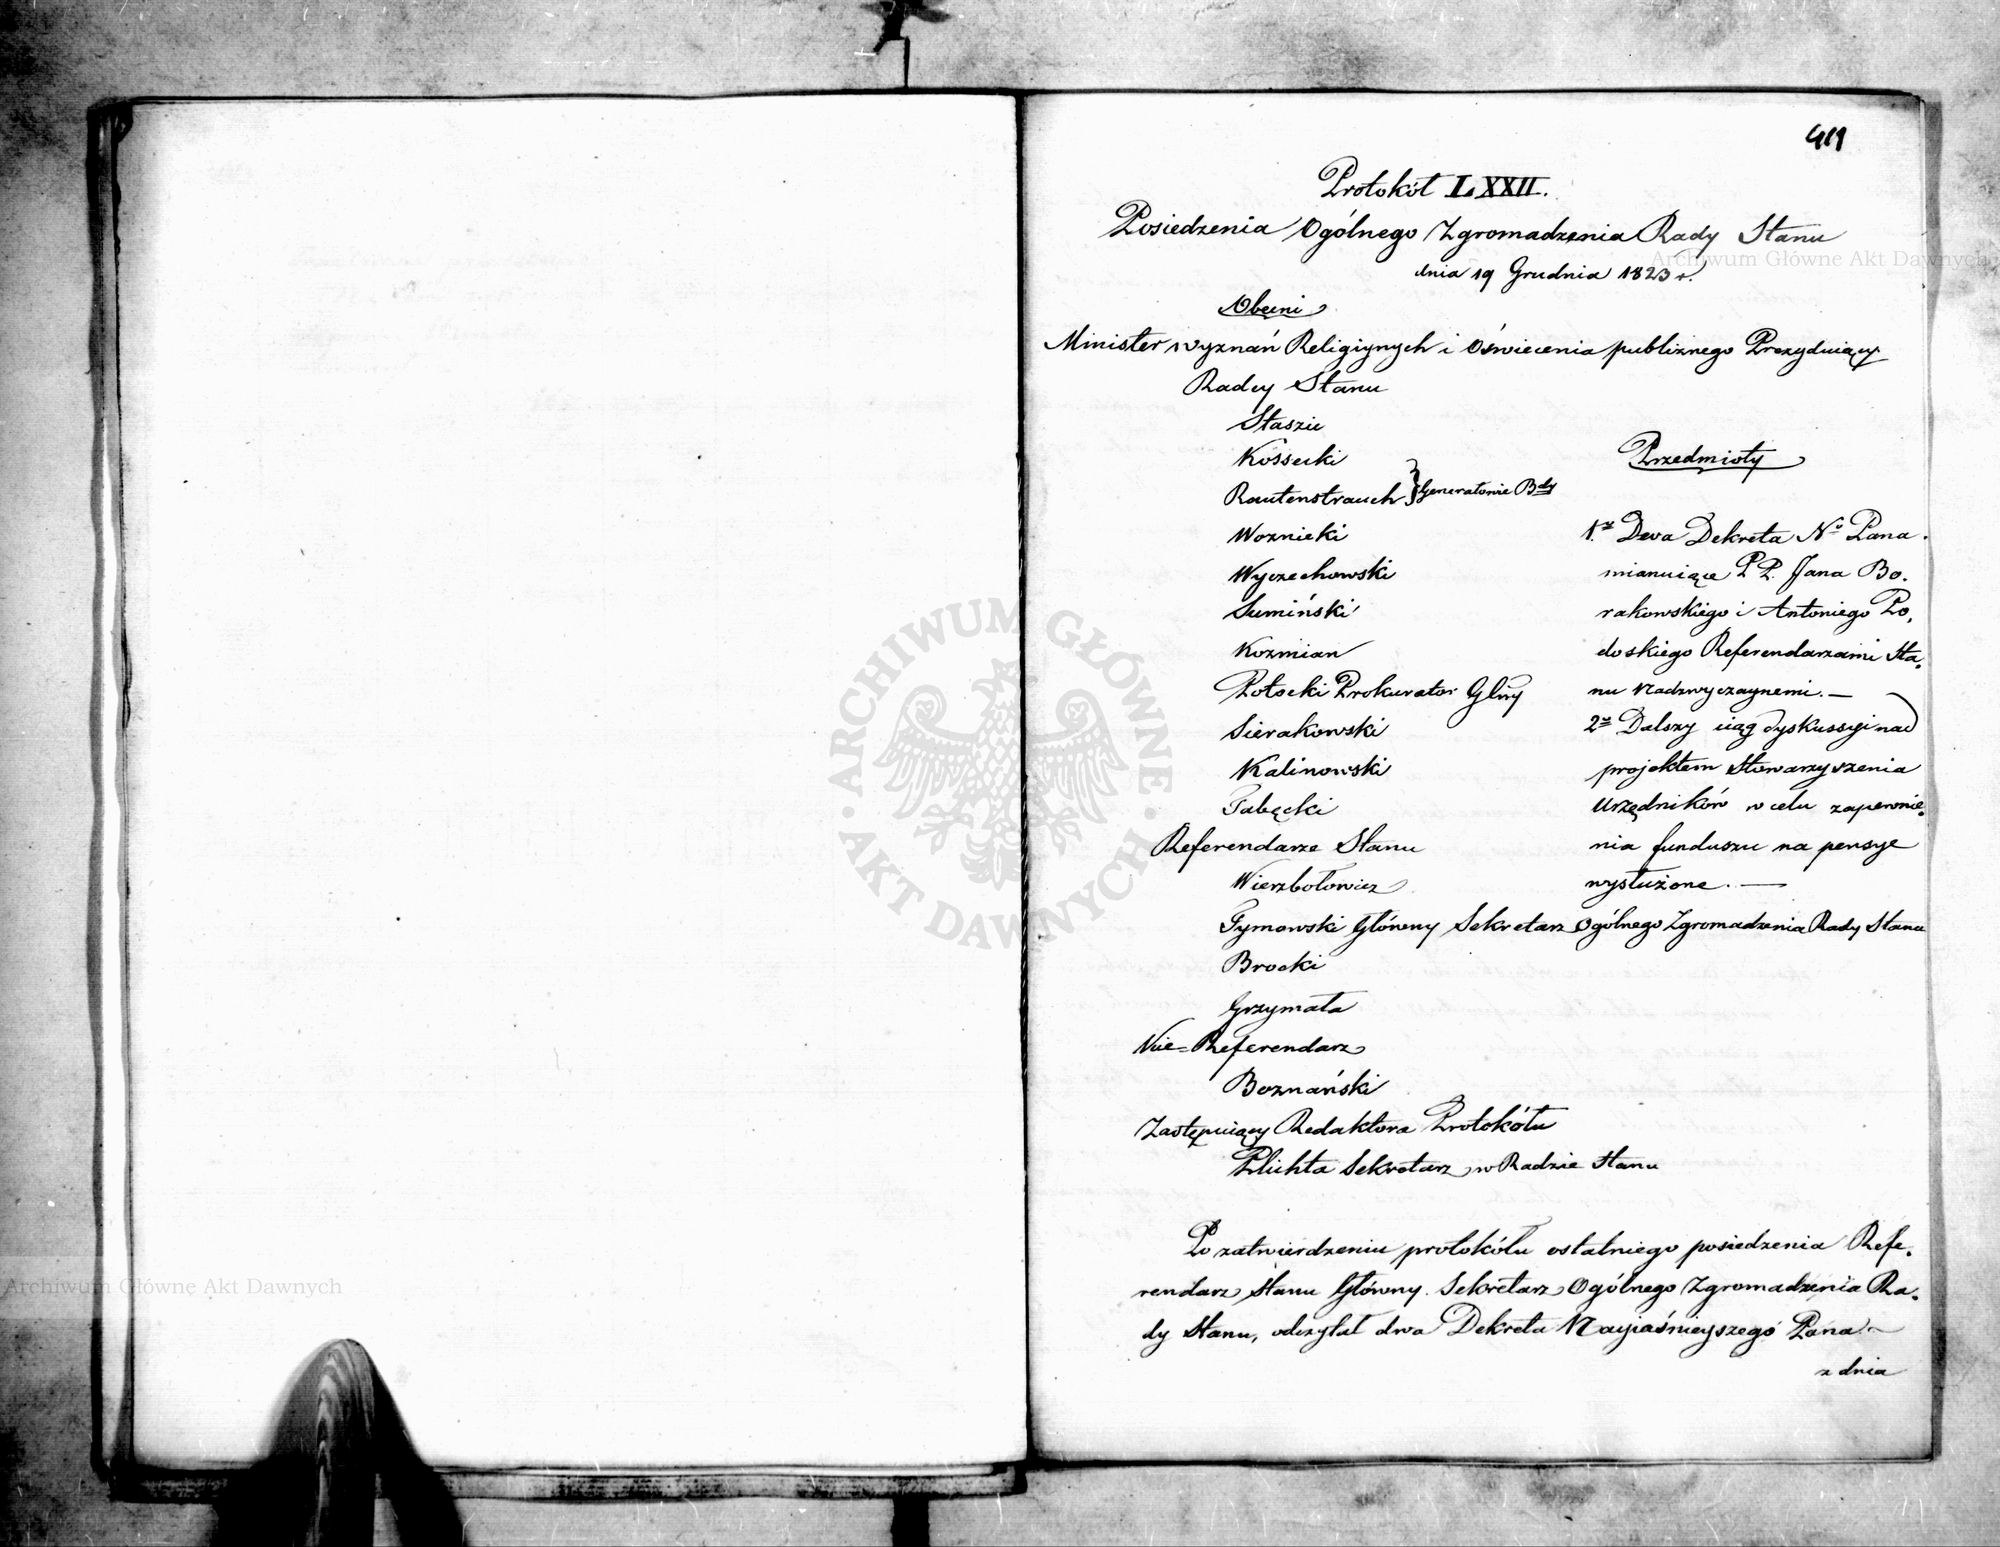 411
Protokół LXXII.
Posiedzenia Ogólnego Zgromadzenia Rady Stanu
dnia 19 Grudnia 1823 r.
Obecni
Minister wyznań Religiynych i Oświecenia publicznego Prezyduiący
Radcy Stanu
Staszic
Kossecki
Rautenstrauch } Generałowie Bdy
Woznicki
Wyczechowski
Sumiński
Kozmian
Potocki Prokurator Glny
Sierakowski
Kalinowski
Tabęcki
Referendarze Stanu
Wierzbołowicz
Tymowski Główny Sekretarz Ogólnego Zgromadzenia Rady Stanu
Brocki
Grzymała
Vice-Referendarz
Boznański
Zastępuiący Redaktora Protokółu
Plichta Sekretarz w Radzie Stanu
Przedmioty
1. Dwa Dekreta No Pana
mianuiące PP. Jana Bo-
rakowskiego i Antoniego Po-
doskiego Referendarzami Sta-
nu Nadzwyczaynemi. —
2 Dalszy ciąg dyskussyi nad
projektem Stowarzyszenia
Urzędników w celu zapewnie-
nia funduszu na pensye
wysłużone. —
Po zatwierdzeniu protokółu ostatniego posiedzenia Refe-
rendarz Stanu Główny Sekretarz Ogólnego Zgromadzenia Ra-
dy Stanu, odczytał dwa Dekreta Nayiaśnieyszego Pana —
z dnia
Archiwum Główne Akt Dawnych
Archiwum Główne Akt Dawnych
· ARCHIWUM GŁÓWNE · AKT DAWNYCH